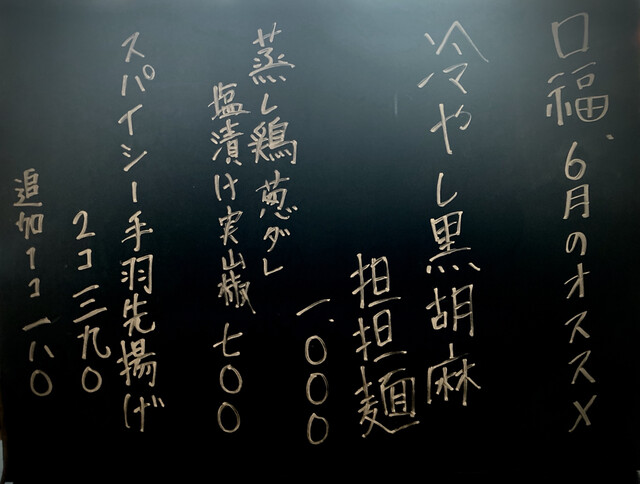 口福、6月のオススメ
冷やし黒胡麻
担担麺
一、〇〇〇
蒸し鶏葱ダレ
塩漬け実山椒 七〇〇
スパイシー手羽先揚げ
2コ 三九〇
追加1コ 一八〇